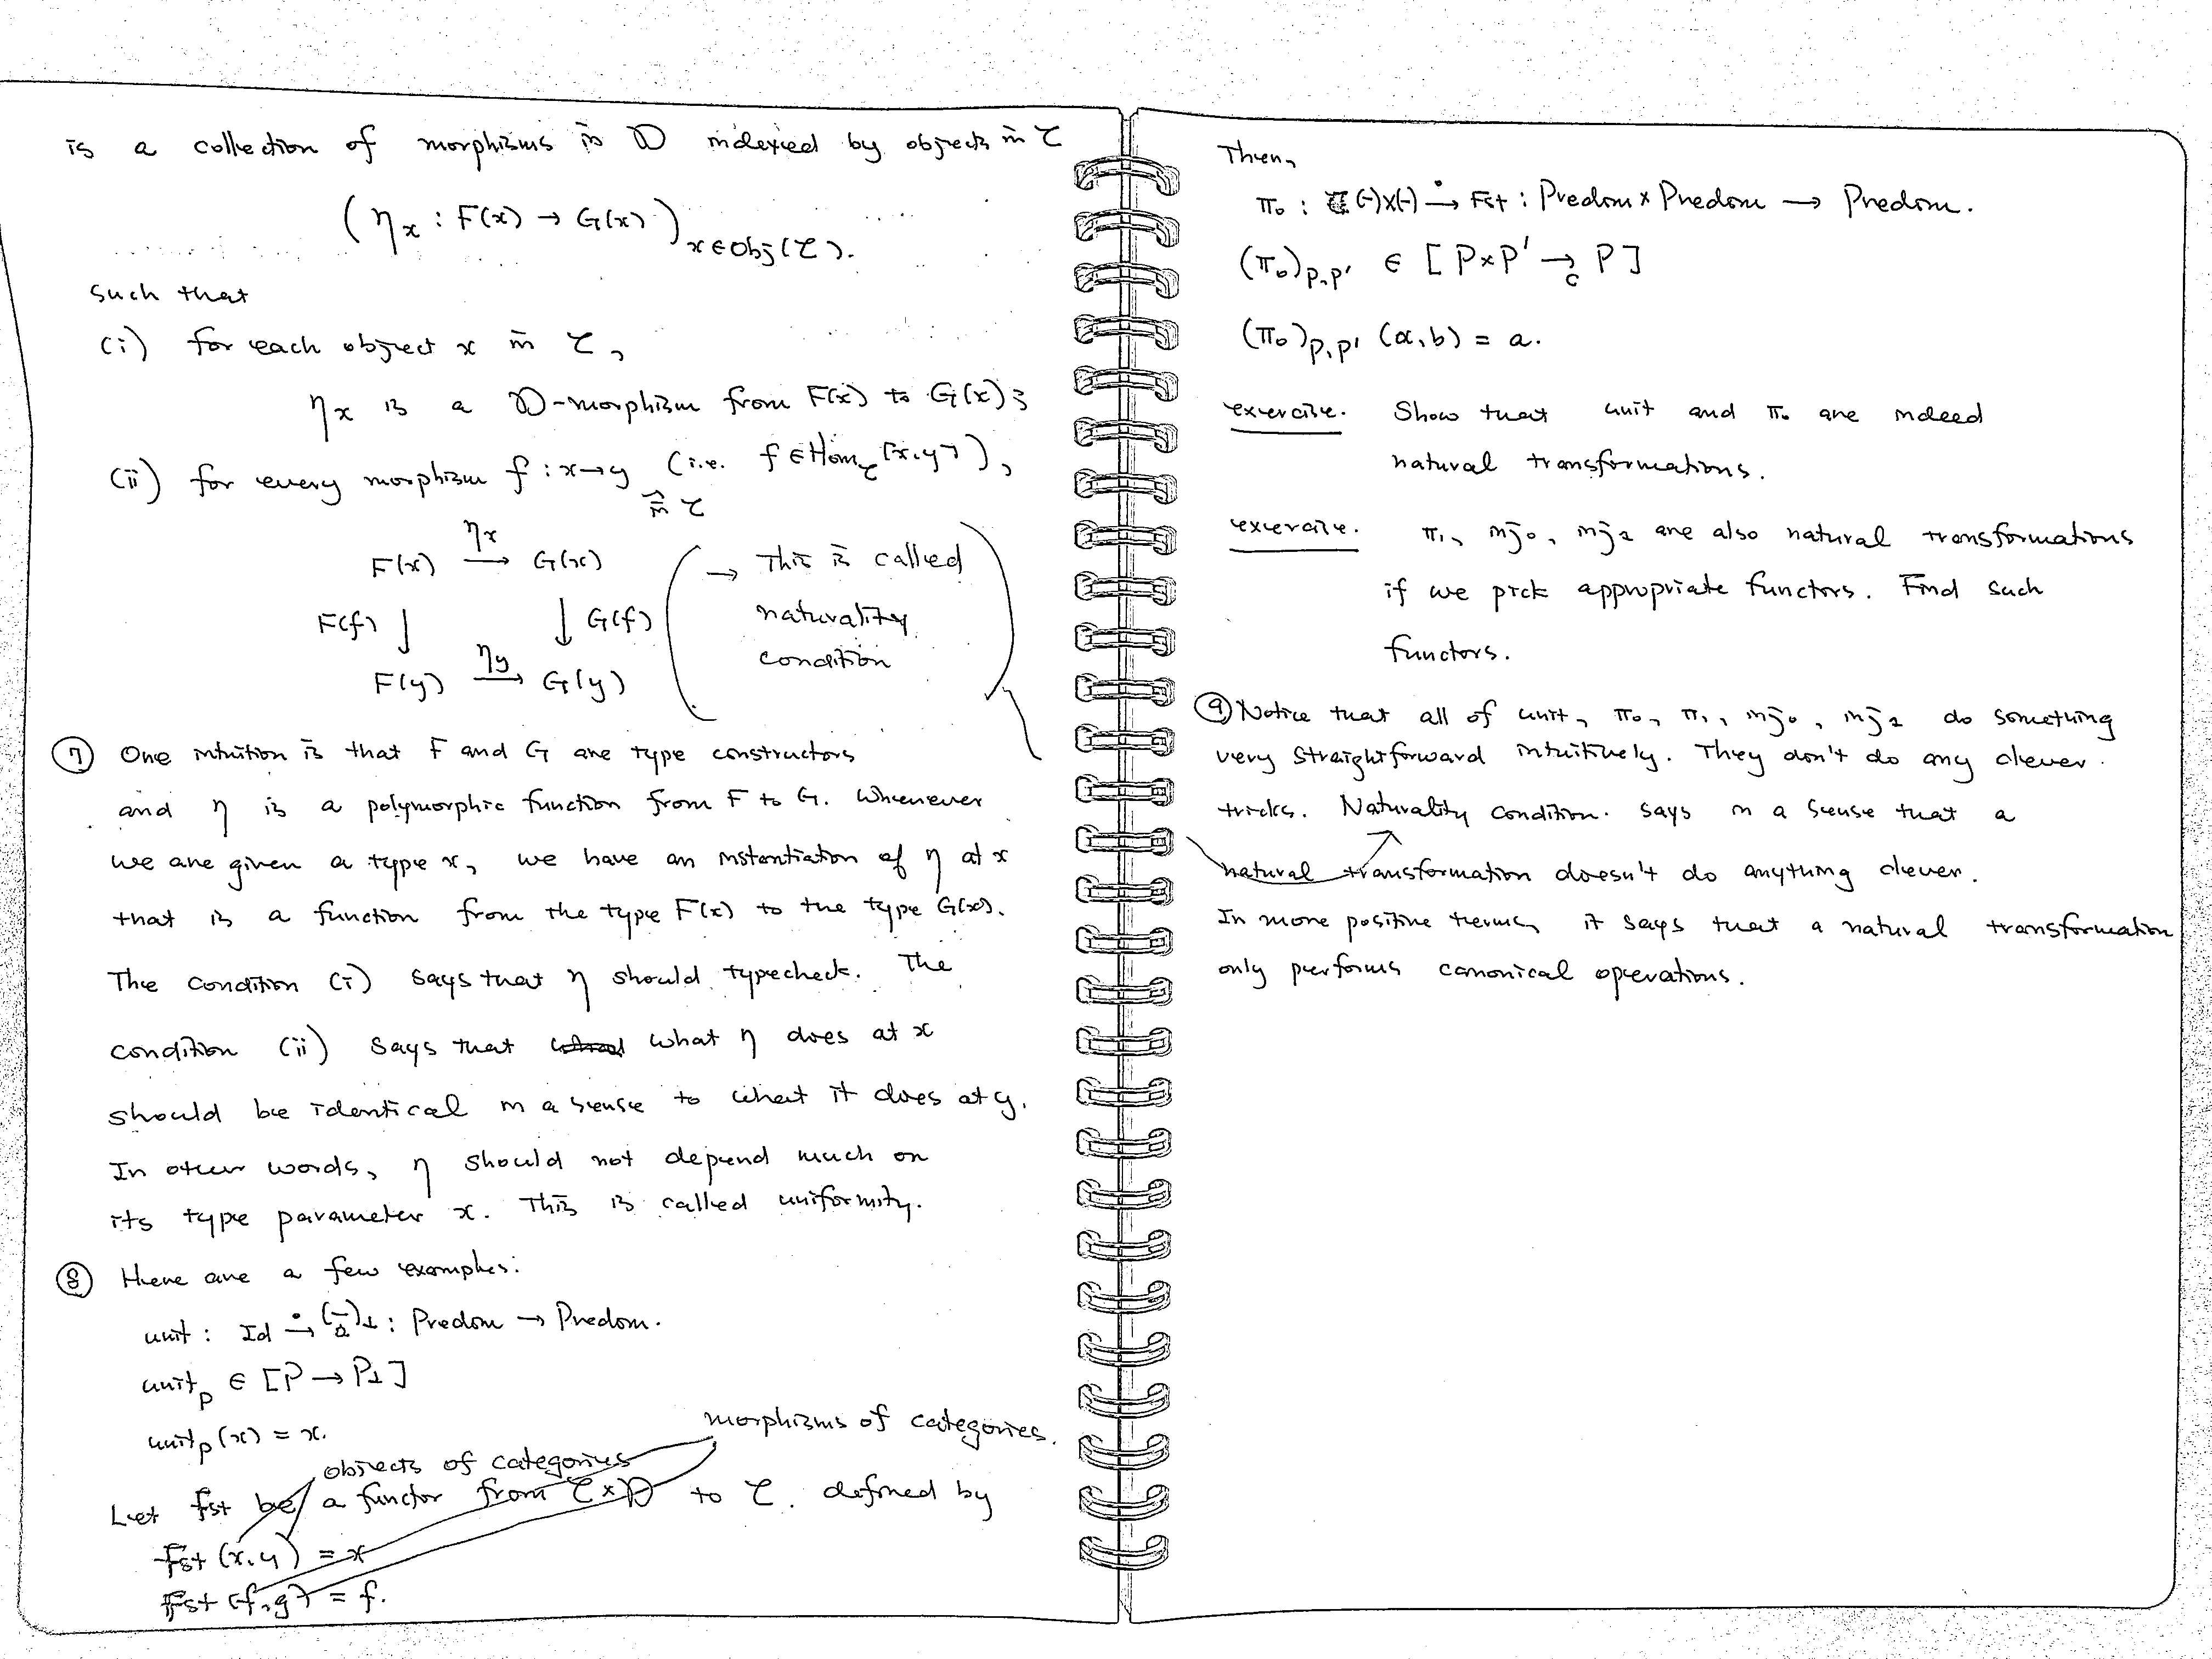 is a collection of morphisms in 𝔻 indexed by objects in 𝒞
(η_x : F(x) → G(x))_{x∈Obj(𝒞)}.
such that
(i) for each object x in 𝒞,
η_x is a 𝔻-morphism from F(x) to G(x);
(ii) for every morphism f : x→y (i.e. f ∈ Hom_𝒞[x,y]),
in 𝒞
η_x
F(x) → G(x)
F(f) ↓ ↓ G(f)
η_y
F(y) → G(y)
→ This is called
naturality
condition
⑦ One intuition is that F and G are type constructors
and η is a polymorphic function from F to G. Whenever
we are given a type x, we have an instantiation of η at x
that is a function from the type F(x) to the type G(x).
The condition (i) says that η should typecheck. The
condition (ii) says that what η does at x
should be identical in a sense to what it does at y.
In other words, η should not depend much on
its type parameter x. This is called uniformity.
⑧ Here are a few examples:
unit : Id →̇ (-)_⊥ : Predom → Predom.
unit_P ∈ [P → P_⊥]
unit_P(x) = x.
morphisms of categories.
objects of categories
Let Fst be a functor from 𝒞×𝔻 to 𝒞. defined by
Fst (x,y) = x
Fst (f,g) = f.
Then,
π₀ : (-)×(-) →̇ Fst : Predom × Predom → Predom.
(π₀)_{P,P'} ∈ [P×P' →_c P]
(π₀)_{P,P'} (a,b) = a.
exercise. Show that unit and π₀ are indeed
natural transformations.
exercise. π₁, inj₀, inj₁ are also natural transformations
if we pick appropriate functors. Find such
functors.
⑨ Notice that all of unit, π₀, π₁, inj₀, inj₁ do something
very straightforward intuitively. They don't do any clever
tricks. Naturality condition says in a sense that a
natural transformation doesn't do anything clever.
In more positive terms, it says that a natural transformation
only performs canonical operations.